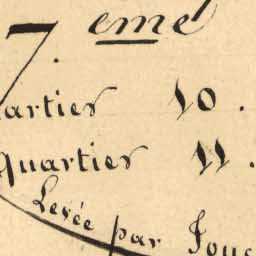 7. eme
artier 10.
Quartier 11.
Levée par